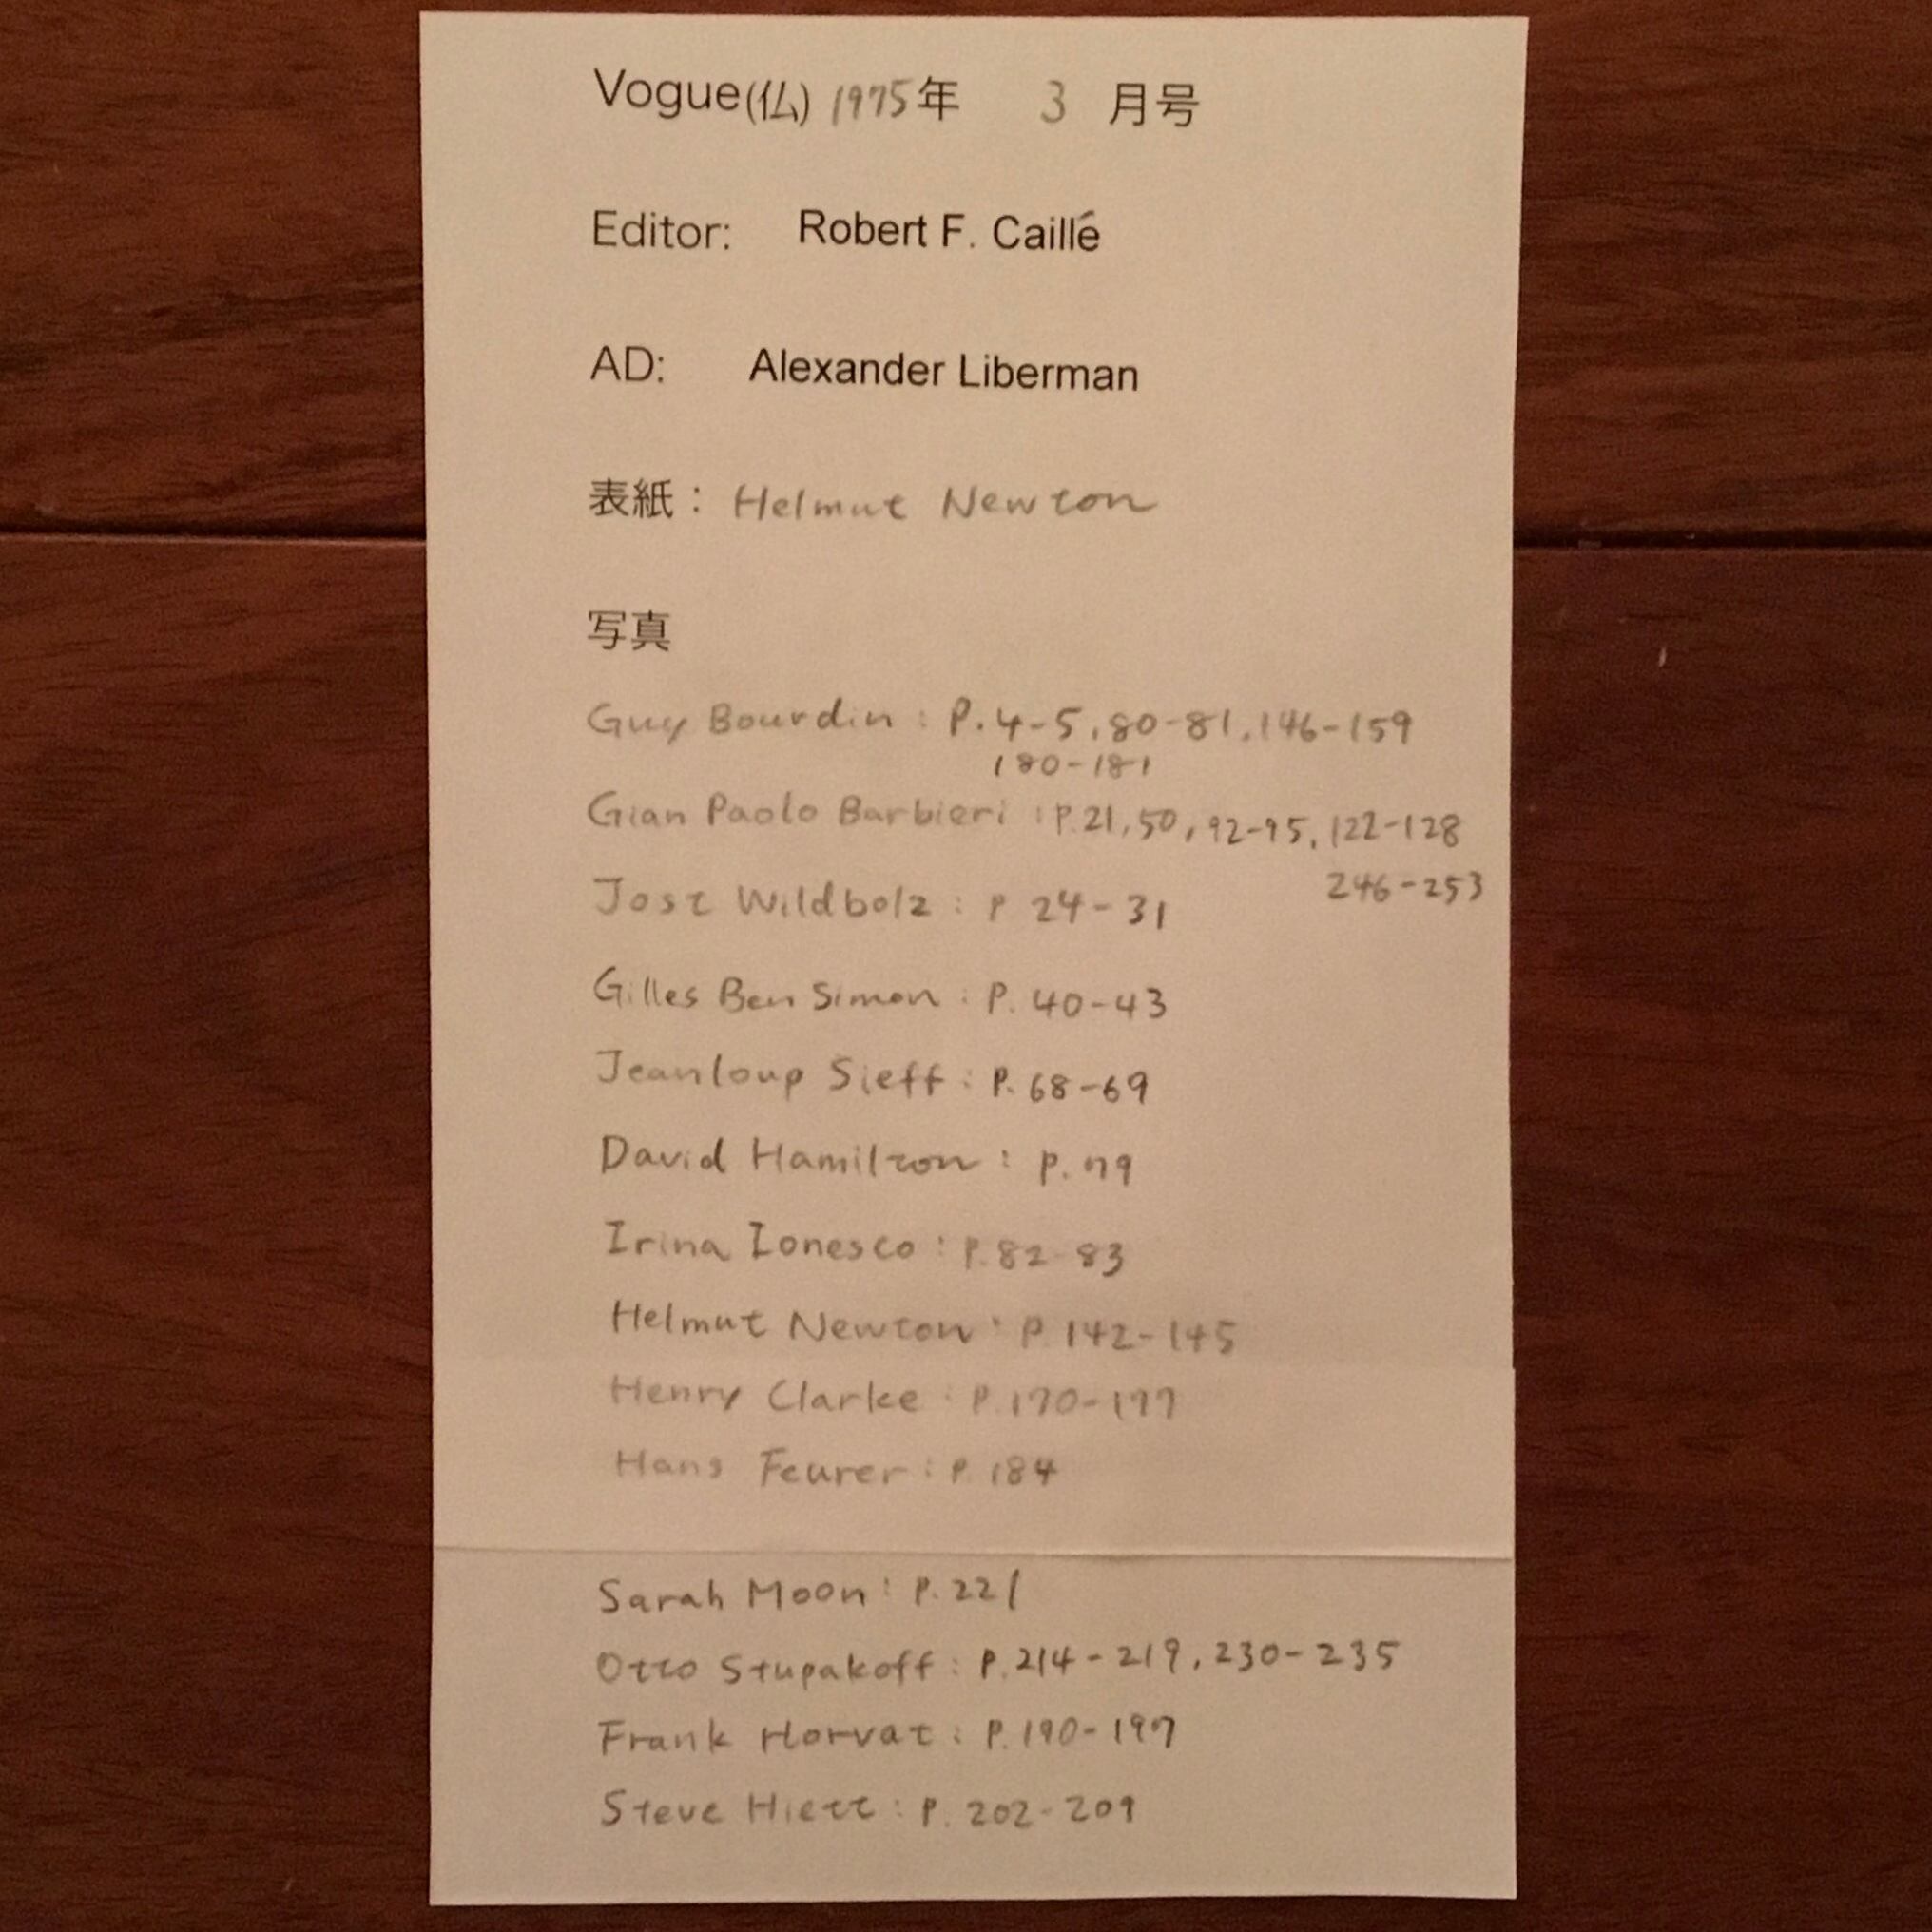 Vogue(仏) 1975年 3 月号
Editor: Robert F. Caillé
AD: Alexander Liberman
表紙: Helmut Newton
写真
Guy Bourdin : P.4-5, 80-81, 146-159
180-181
Gian Paolo Barbieri : P.21, 50, 92-95, 122-128
246-253
Jost Wildbolz : P 24-31
Gilles Ben Simon : P. 40-43
Jeanloup Sieff : P. 68-69
David Hamilton : P. 79
Irina Ionesco : P. 82-83
Helmut Newton : P 142-145
Henry Clarke : P. 170-177
Hans Feurer : P. 184
Sarah Moon : P. 221
Otto Stupakoff : P. 214-219, 230-235
Frank Horvat : P. 190-197
Steve Hiett : P. 202-209